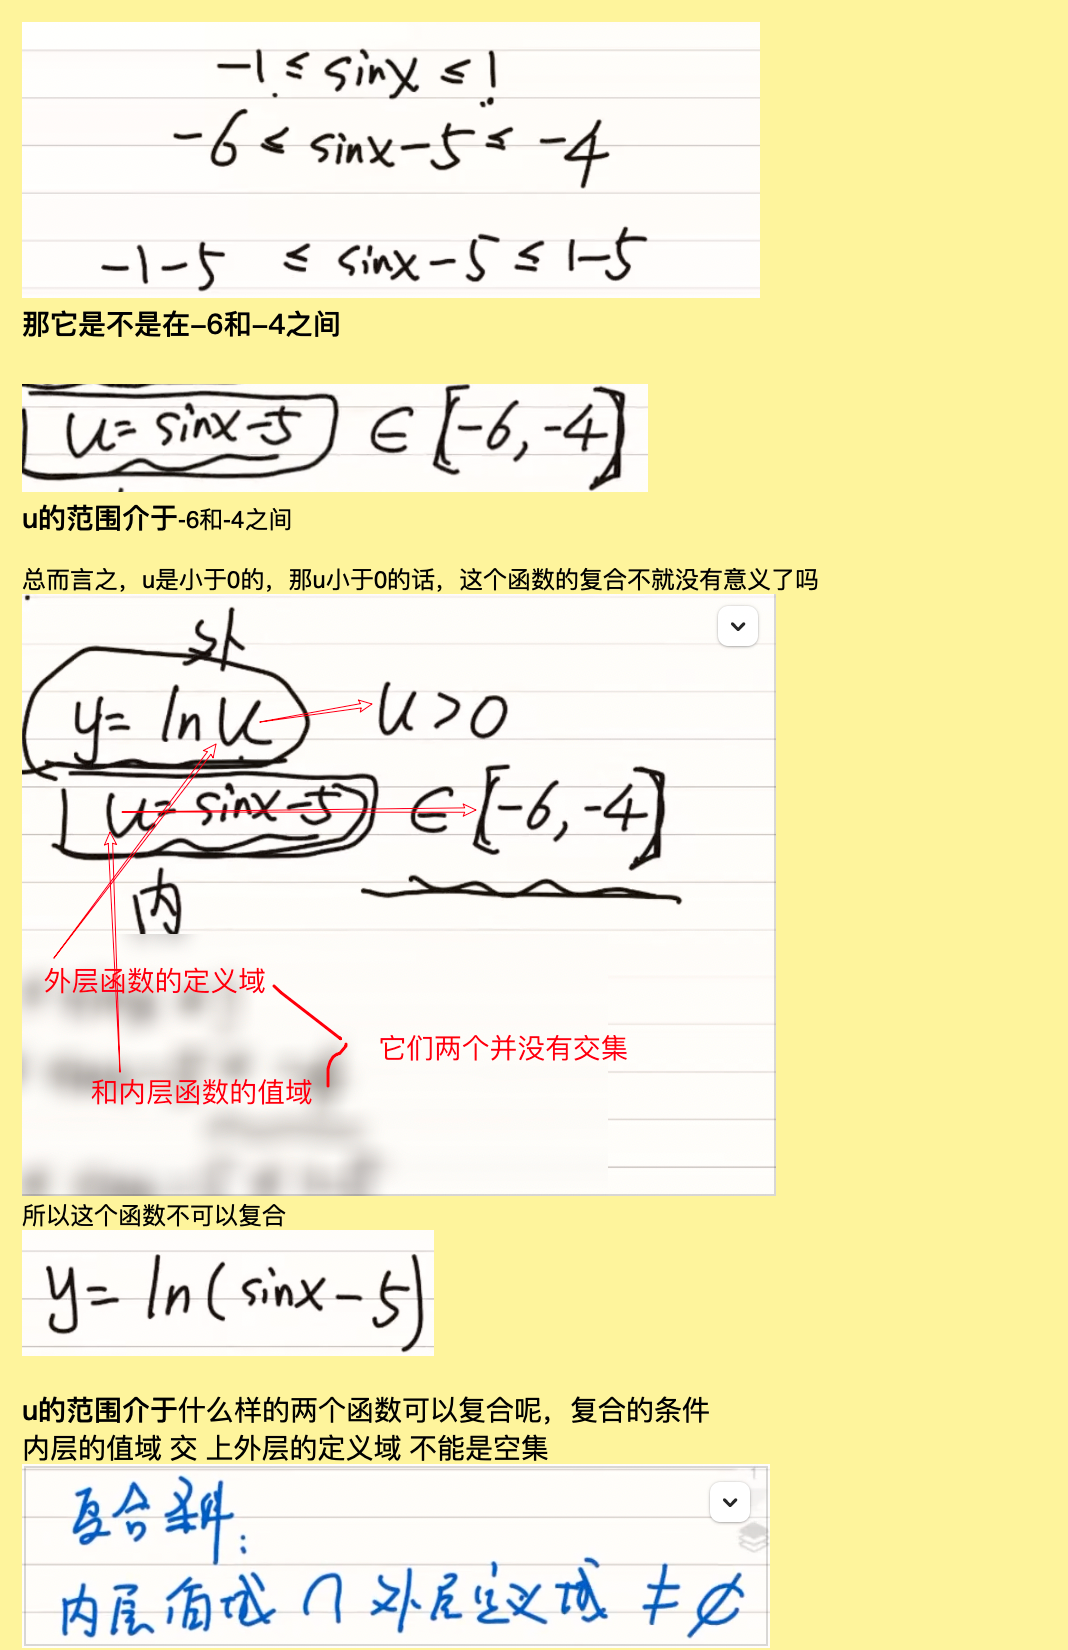 -1 ≤ sinx ≤ 1
-6 ≤ sinx-5 ≤ -4
-1-5 ≤ sinx-5 ≤ 1-5
那它是不是在-6和-4之间
u= sinx-5 ∈ [-6,-4]
u的范围介于-6和-4之间
总而言之，u是小于0的，那u小于0的话，这个函数的复合不就没有意义了吗
外
y= lnu u>0
u= sinx-5 ∈ [-6,-4]
内
外层函数的定义域
它们两个并没有交集
和内层函数的值域
所以这个函数不可以复合
y= ln(sinx-5)
u的范围介于什么样的两个函数可以复合呢，复合的条件
内层的值域 交 上外层的定义域 不能是空集
复合条件：
内层值域 ∩ 外层定义域 ≠ ∅